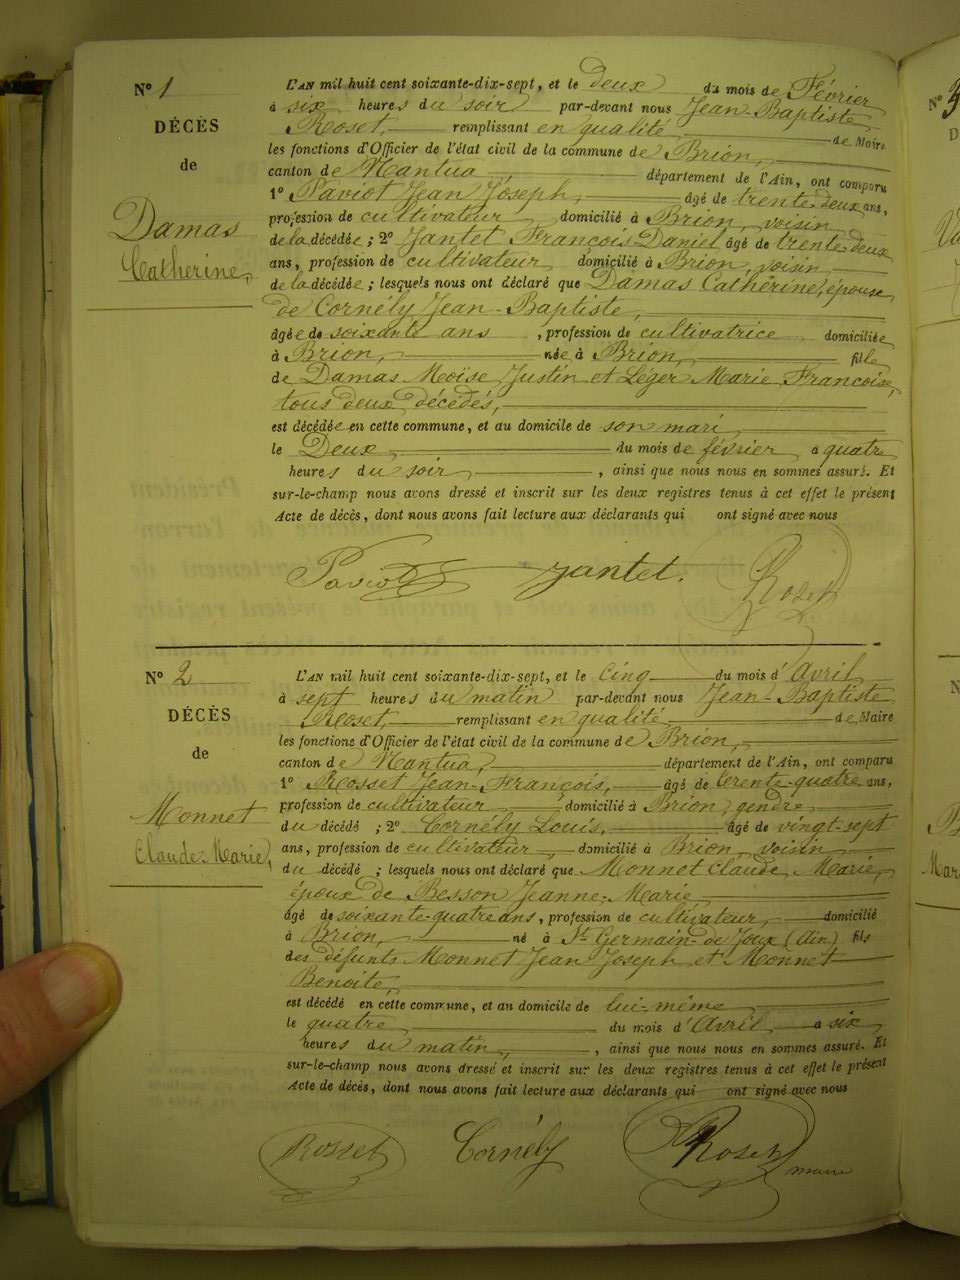 N° 1
DÉCÈS
de
Damas
Catherine,
L'AN mil huit cent soixante-dix-sept, et le deux du mois de Février
à six heures du soir par-devant nous Jean-Baptiste
Roset, remplissant en qualité de Maire
les fonctions d'Officier de l'état civil de la commune de Brion,
canton de Nantua département de l'Ain, ont comparu
1° Paviot Jean Joseph, âgé de trente-deux ans,
profession de cultivateur domicilié à Brion, voisin
de la décédée ; 2° Jantet François Daniel âgé de trente-deux
ans, profession de cultivateur domicilié à Brion, voisin
de la décédée ; lesquels nous ont déclaré que Damas Cathérine, épouse
de Cornély Jean-Baptiste,
âgée de soixante ans , profession de cultivatrice domiciliée
à Brion, née à Brion, fille
de Damas Moïse Justin et Léger Marie Françoise,
tous deux décédés,
est décédée en cette commune, et au domicile de son mari
le Deux du mois de février a quatre
heures du soir , ainsi que nous nous en sommes assuré. Et
sur-le-champ nous avons dressé et inscrit sur les deux registres tenus à cet effet le présent
Acte de décès, dont nous avons fait lecture aux déclarants qui ont signé avec nous
Paviot Jantet. Roset
N° 2
DÉCÈS
de
Monnet
Claude-Marie,
L'AN mil huit cent soixante-dix-sept, et le cinq du mois d'Avril
à sept heures du matin par-devant nous Jean-Baptiste
Roset, remplissant en qualité de Maire
les fonctions d'Officier de l'état civil de la commune de Brion,
canton de Nantua, département de l'Ain, ont comparu
1° Rosset Jean-François, âgé de trente-quatre ans,
profession de cultivateur domicilié à Brion, gendre
du décédé ; 2° Cornély Louis, âgé de vingt-sept
ans, profession de cultivateur domicilié à Brion, voisin
du décédé ; lesquels nous ont déclaré que Monnet Claude Marie,
époux de Besson Jeanne-Marie
âgé de soixante-quatre ans, profession de cultivateur, domicilié
à Brion, né à St Germain-de Joux (Ain) fils
des défunts Monnet Jean Joseph et Monnet
Benoite,
est décédé en cette commune, et au domicile de lui-même
le quatre du mois d'Avril a six
heures du matin , ainsi que nous nous en sommes assuré. Et
sur-le-champ nous avons dressé et inscrit sur les deux registres tenus à cet effet le présent
Acte de décès, dont nous avons fait lecture aux déclarants qui ont signé avec nous
Rosset Cornély Roset
maire